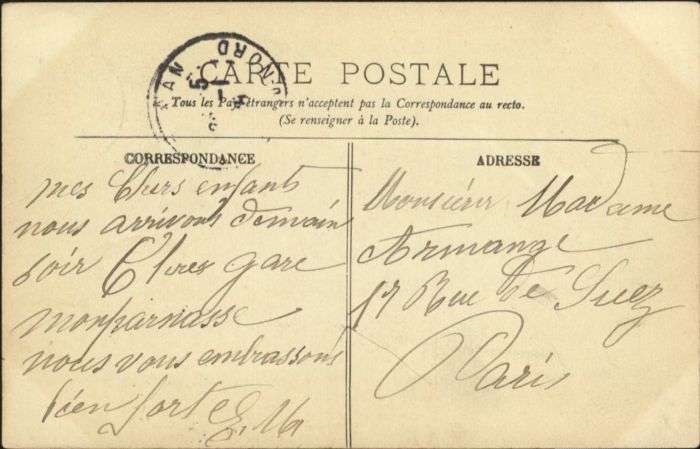 CARTE POSTALE
Tous les Pays étrangers n'acceptent pas la Correspondance au recto.
(Se renseigner à la Poste).
NORD
CORRESPONDANCE
mes Chers enfants
nous arrivons demain
soir gare
monparnasse
nous vous embrassons
bien fort
ADRESSE
Monsieur Madame
Armange
17 Rue de Suez
Paris